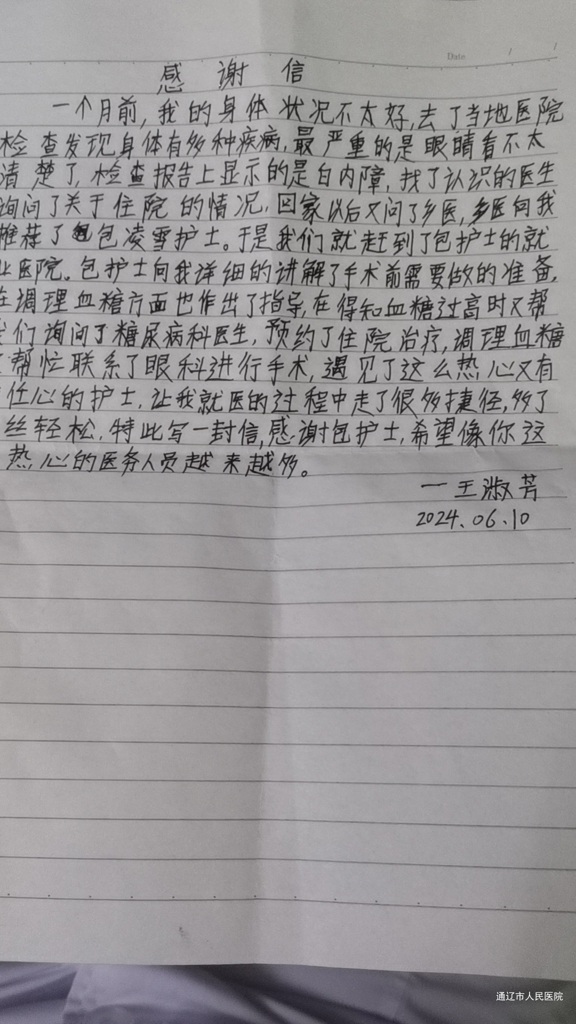 Date / /
感谢信
一个月前,我的身体状况不太好,去了当地医院
检查发现身体有多种疾病,最严重的是眼睛看不太
清楚了,检查报告上显示的是白内障,找了认识的医生
询问了关于住院的情况,回家以后又问了乡医,乡医向我
推荐了包凌雪护士。于是我们就赶到了包护士的就
业医院。包护士向我详细的讲解了手术前需要做的准备,
在调理血糖方面也作出了指导,在得知血糖过高时又帮
我们询问了糖尿病科医生,预约了住院治疗,调理血糖
帮忙联系了眼科进行手术,遇见了这么热心又有
任心的护士,让我就医的过程中走了很多捷径,多了
丝轻松,特此写一封信,感谢包护士,希望像你这
热心的医务人员越来越多。
一王淑芳
2024.06.10
通辽市人民医院